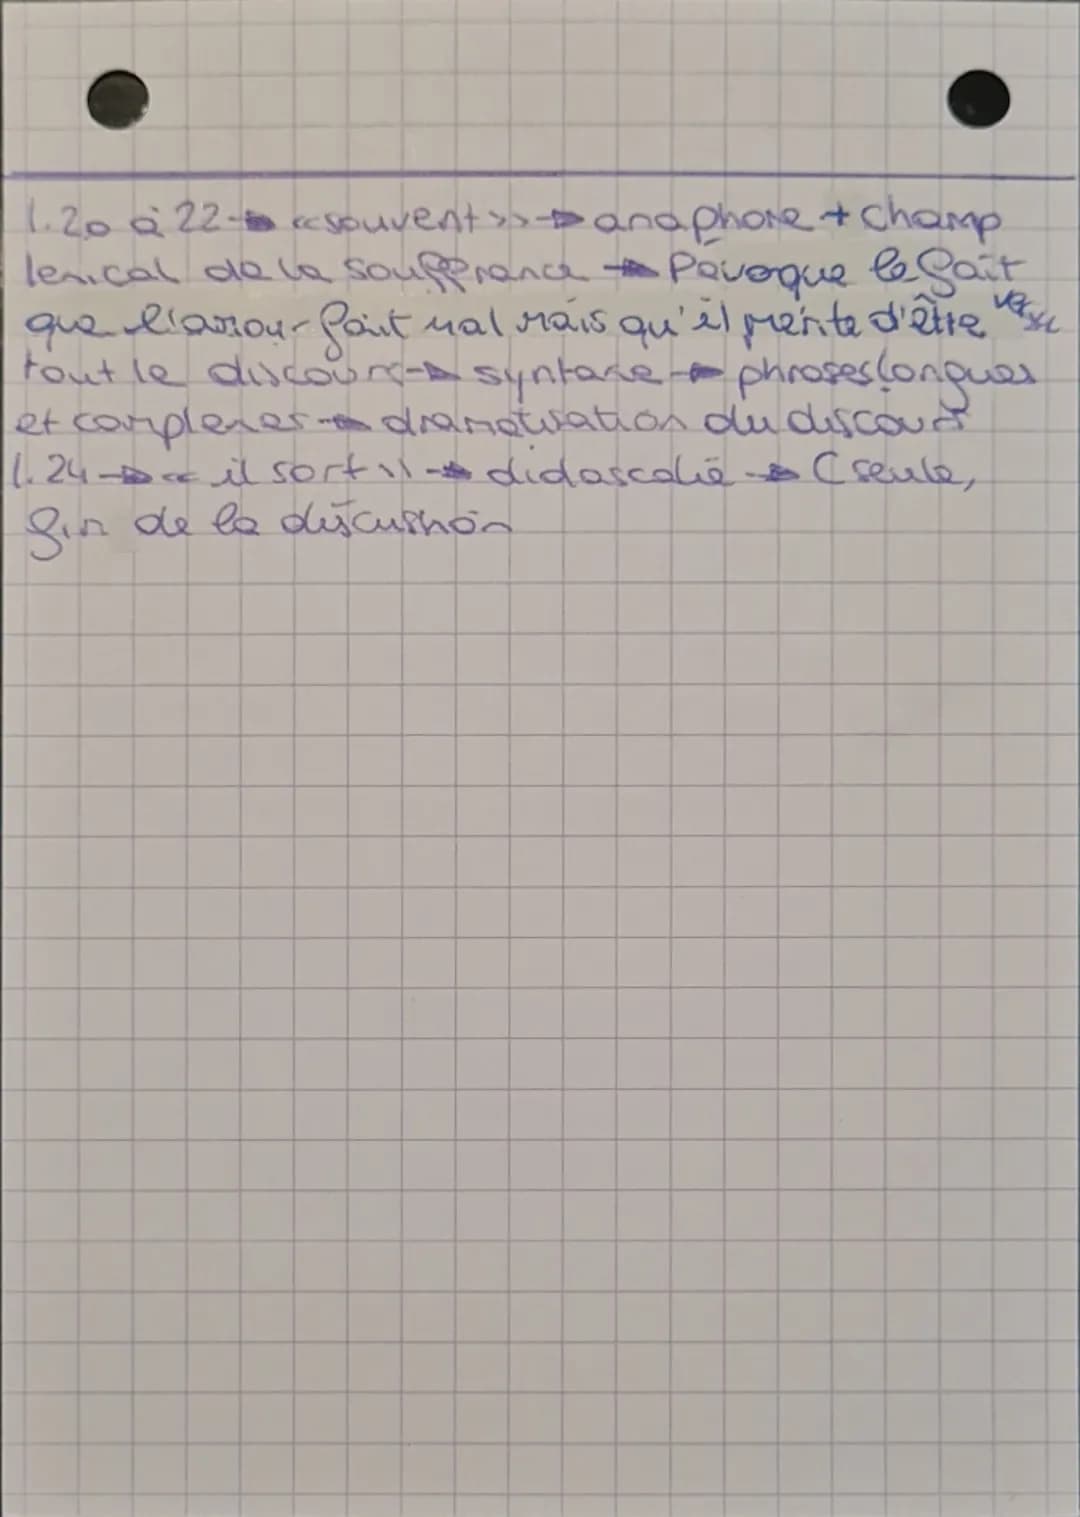 l.20 à 22 → «souvent» → anaphore + champ
lexical de la souffrance → P évoque le fait
que l'amour fait mal mais qu'il mérite d'être
tout le discours → syntaxe → phrases longues
et complexes → dramatisation du discours
l.24 → « il sort » → didascalie → C seule,
fin de la discussion